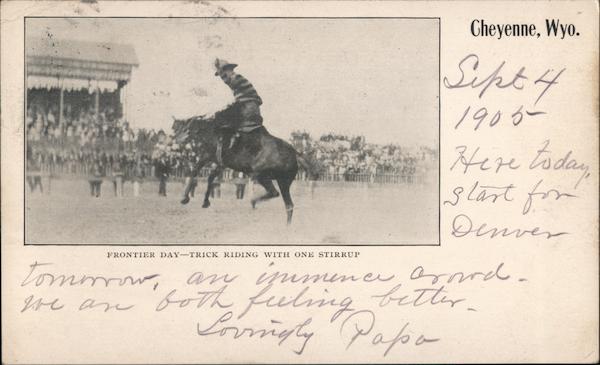 Cheyenne, Wyo.
Sept 4
1905
Here today,
start for
Denver
FRONTIER DAY—TRICK RIDING WITH ONE STIRRUP
tomorrow, an immence crowd-
we are both feeling better-
Lovingly Papa